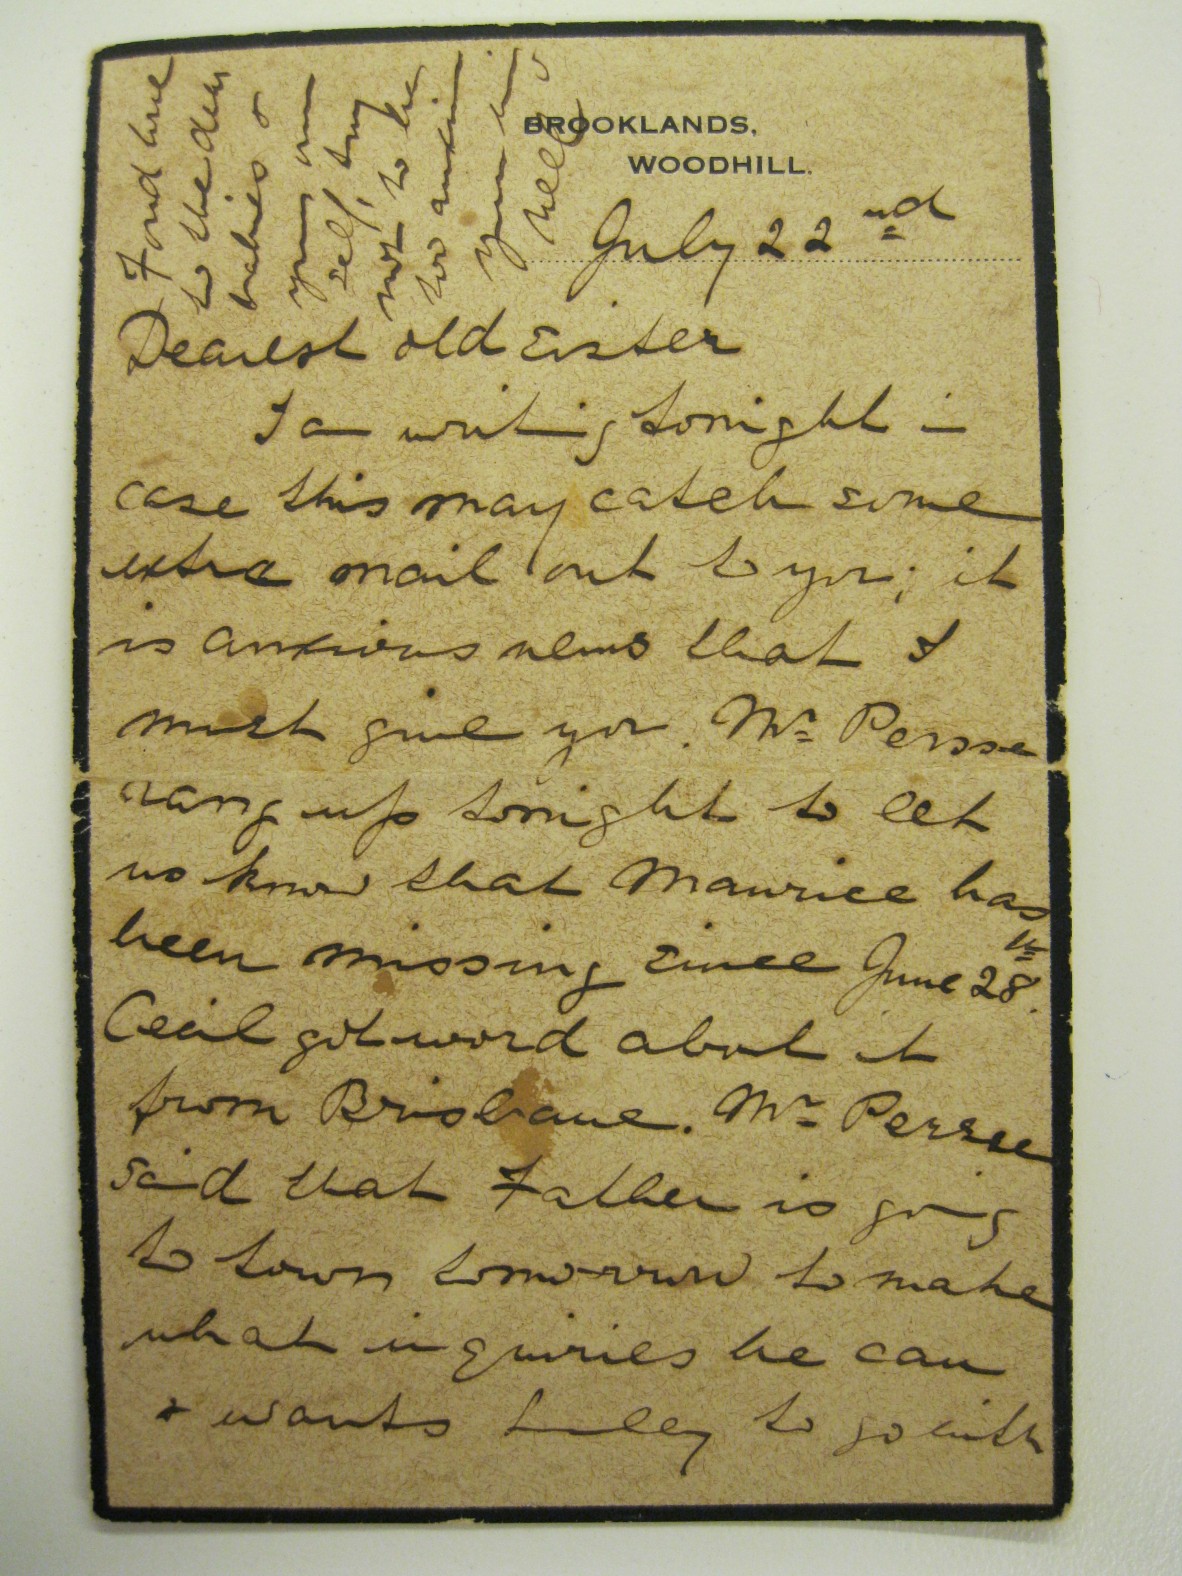 BROOKLANDS,
WOODHILL.
July 22nd
Dearest old Sister
I am writing tonight in
case this may catch some
extra mail out to you; it
is anxious news that I
must give you. Mr Persse
rang up tonight to let
us know that Maurice has
been missing since June 28th.
Cecil got word about it
from Brisbane. Mr Persse
said that Father is going
to town tomorrow to make
what inquiries he can
& wants to go with
Fond love
to the dear
babies &
your own
self, try
not to be
too anxious
your own
Nell